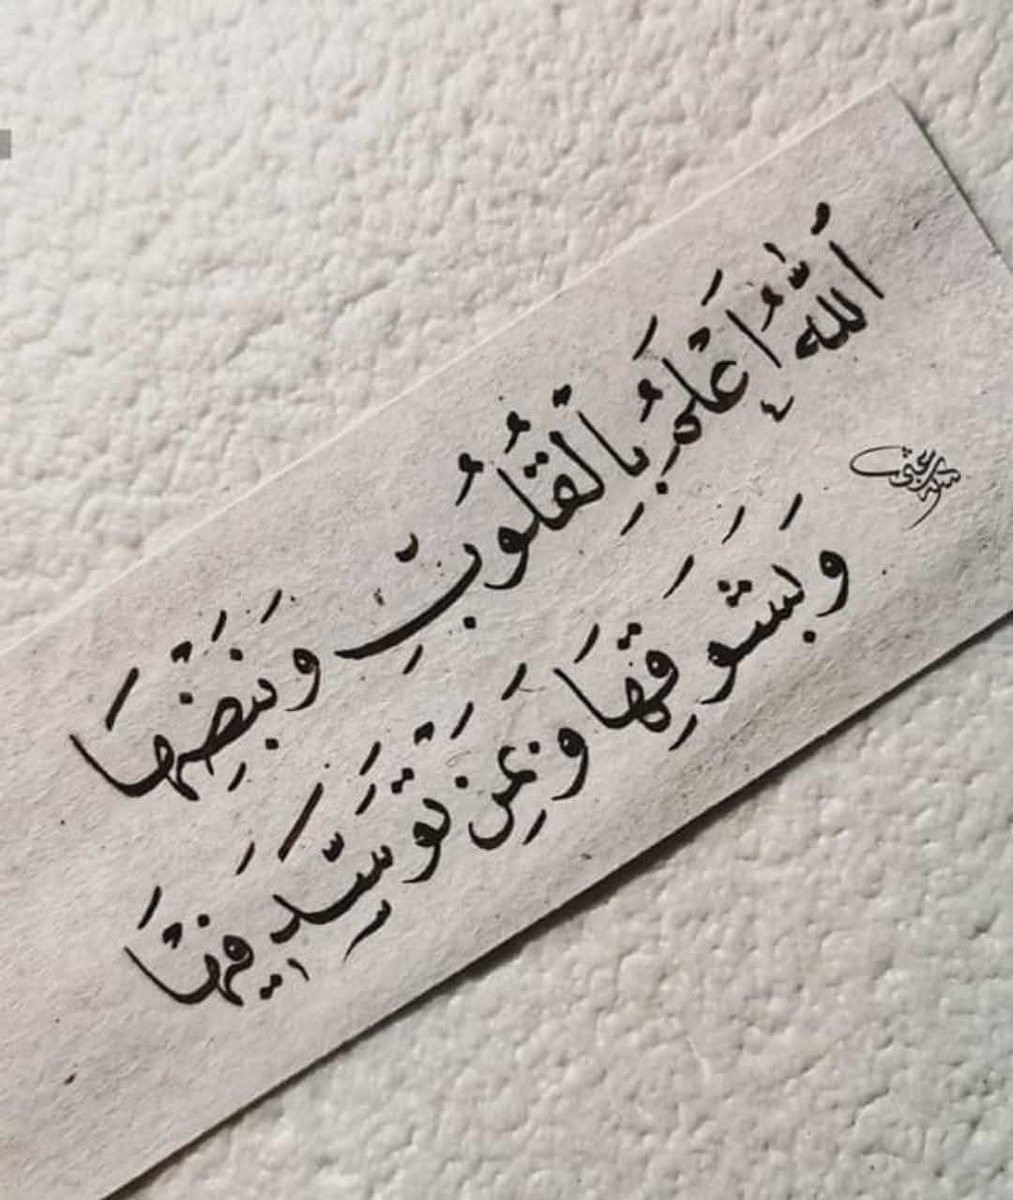 اَللّٰهُ أَعْلَمُ بِالْقُلُوبِ وَنَبَضِهَا
وَبَشَوقِهَا وَبِمَن تَوَسَّدَ فِيهَا